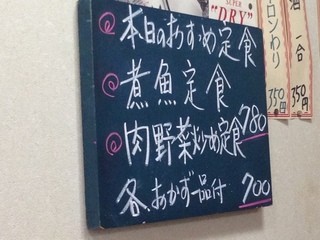 本日のおすすめ定食
煮魚定食
肉野菜炒め定食 780
各、おかず一品付 700
SUPER
"DRY"
酒 一合
350円
350円